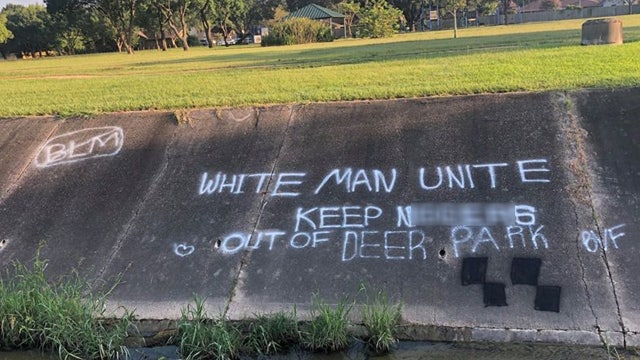 BLM
WHITE MAN UNITE
KEEP N S
OUT OF DEER PARK